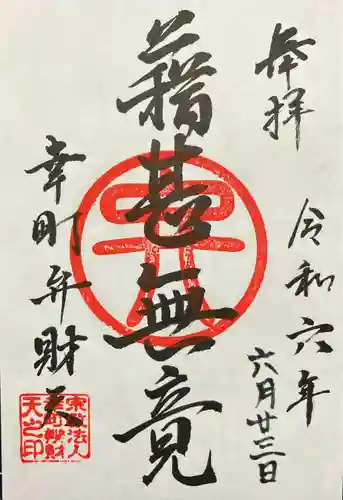 奉拝
令和六年
六月廿三日
籍甚無竟
幸町弁財天
宗教法人
幸町辨財
天之印